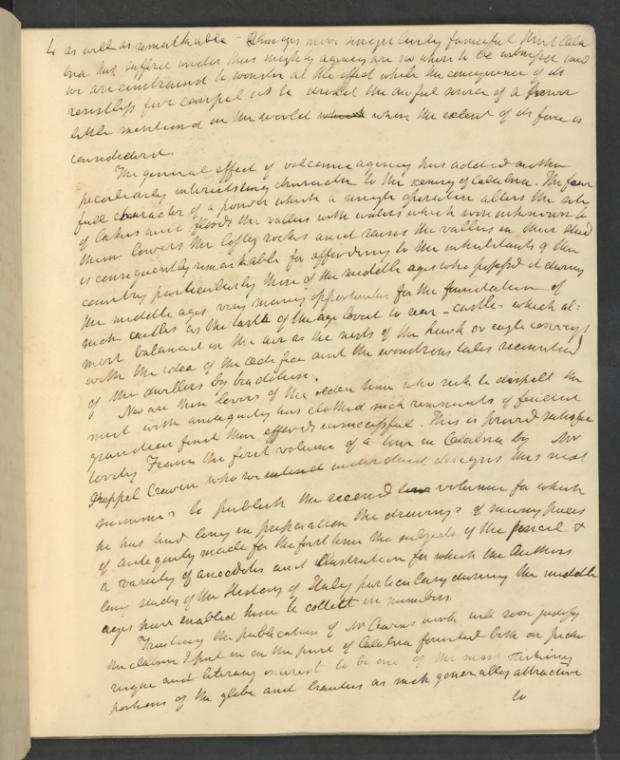 & as well as remarkable - Changes more singularly fanciful that Cala
bria has suffered under this mighty agency are no where to be witnessed and
we are constrained to wonder at the effect while the consequence of its
resistless force compel us to dread the awful source of a power
little mentioned in the world when the extent of its force is
considered.
The general effect of volcanic agency has added another
peculiarly interesting character to the scenery of Calabria. The fear
full character of a power which a single operation alters the site
of lakes and floods the vallies with waters which were unknown to
them lowers the lofty rocks and raises the vallies in their stead
is consequently remarkable for affording to the inhabitants of the
country particularly those of the middle ages who possess'd it during
the middle ages very many opportunities for the foundation of
such castles as the taste of the age loved to rear - castles which al:
most balanced in the air as the nests of the hawk or eagle
with the idea of the edifice and the wondrous tales recounted
of the dwellers by tradition.
Nor are those lovers of the olden time who seek to dispell the
mist with antiquity has clothed such remnants of feudal
grandeur find their efforts unsuccessful. This is proved satisfac
torily from the first volume of a tour in Calabria by Mr
Keppel Craven who designs this next
summer to publish the second volume for which
he has had long in preparation the drawings of many pieces
of antiquity made for the first time the subjects of the pencil &
a variety of anecdotes and illustration for which the Authors
long study of the History of Italy particulary during the middle
ages have enabled him to collect in numbers.
Trusting the publication of Mr Cravens work will soon justify
the claim I put in on the part of Calabria founded both on pictu
resque and literary interest to be one of the most striking
portions of the globe and boasters as such generally attractive
to